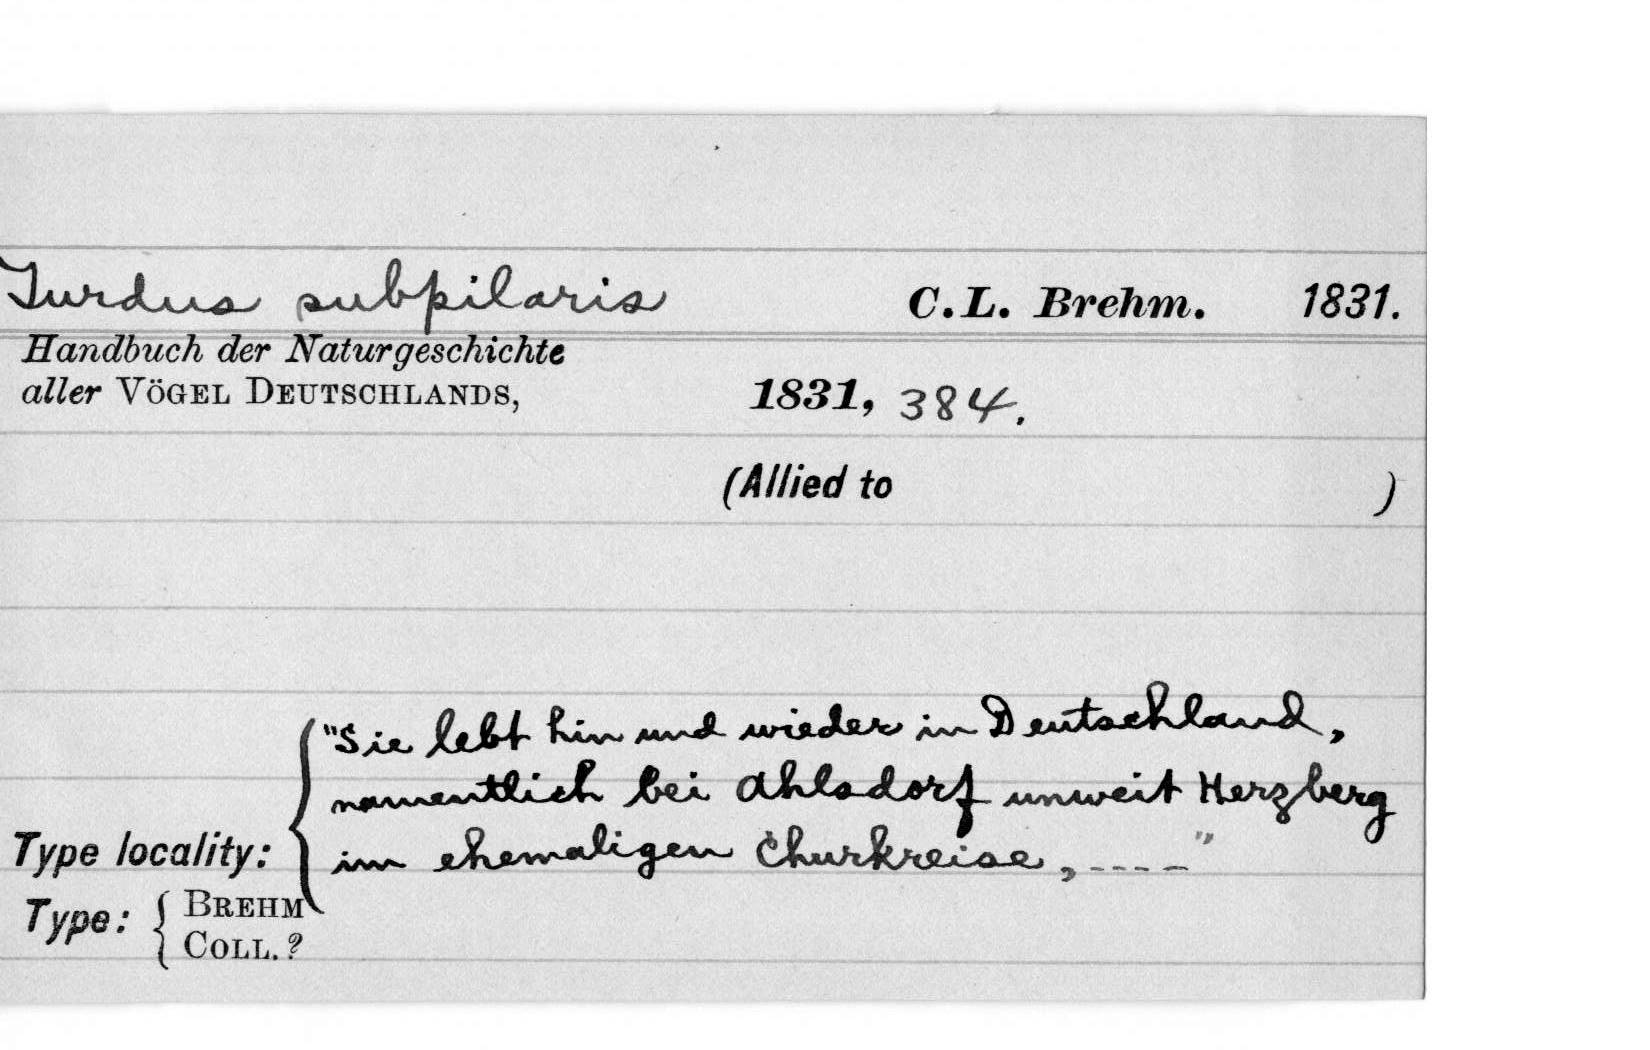 Turdus subpilaris C. L. Brehm. 1831.
Handbuch der Naturgeschichte
aller Vögel Deutschlands, 1831, 384.
(Allied to )
"Sie lebt hin und wieder in Deutschland,
namentlich bei Ahlsdorf unweit Herzberg
Type locality: im ehemaligen Churkreise, ----"
Type: { Brehm
Coll. ?